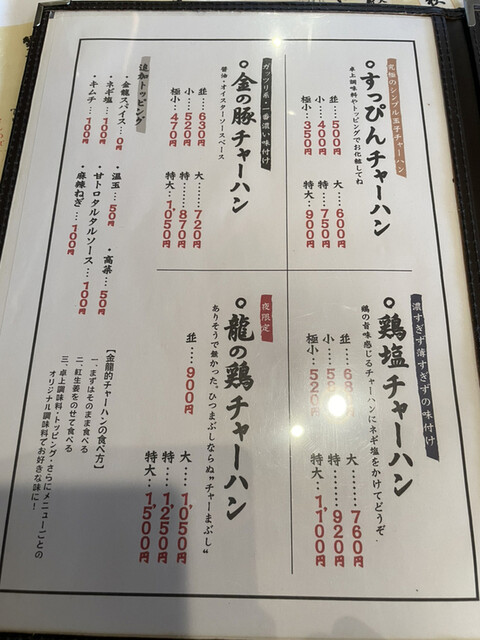 究極のシンプル玉子チャーハン
すっぴんチャーハン
卓上調味料やトッピングでお化粧してね
並…500円
小…400円
極小…350円
大…600円
特…750円
特大…900円
ガッツリ系・一番濃い味付け
金の豚チャーハン
醤油・オイスターソースベース
並…630円
小…520円
極小…470円
大…720円
特…870円
特大…1,050円
追加トッピング
・金龍スパイス…0円
・ネギ塩…100円
・キムチ…100円
・温玉…50円
・甘トロタルタルソース…100円
・麻辣ねぎ…100円
・高菜…50円
濃すぎず薄すぎずの味付け
鶏塩チャーハン
鶏の旨味感じるチャーハンにネギ塩をかけてどうぞ.
並…68
小…58
極小…520
大………760円
特………920円
特大……1,100円
夜限定
龍の鶏チャーハン
ありそうで無かった、ひつまぶしならぬ"チャーまぶし"
並…900円
大…1,050円
特…1,250円
特大…1,500円
【金龍的チャーハンの食べ方】
一.まずはそのまま食べる
二.紅生姜をのせて食べる
三.卓上調味料・トッピング・さらにメニューごとの
オリジナル調味料でお好きな味に!